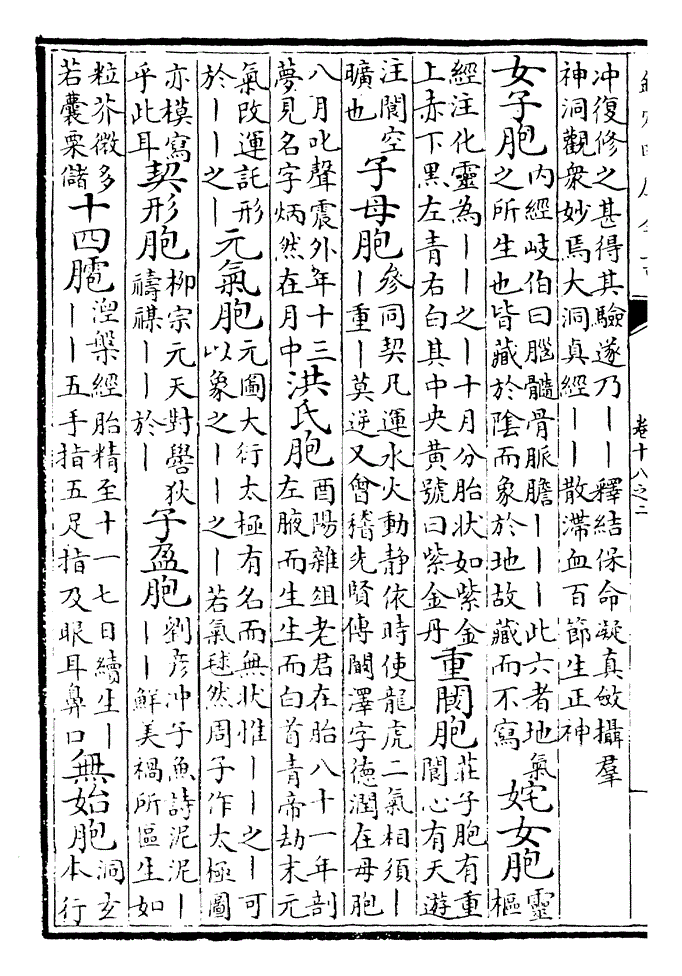 欽定四庫全書
卷十八之二
冲復修之甚得其驗遂乃丨丨釋結保命凝真斂攝羣
神洞觀衆妙焉大洞真經丨丨散滯血百節生正神
女子胞
内經岐伯曰腦髓骨脈膽丨丨丨此六者地氣
之所生也皆藏於陰而象於地故藏而不寫
姹女胞
靈
樞
經注化靈為丨丨之丨十月分胎狀如紫金
上赤下黑左青右白其中央黄號曰紫金丹
重閬胞
莊子胞有重
閬心有天遊
注閬空
曠也
子母胞
參同契凡運水火動静依時使龍虎二氣相須丨
丨重丨莫逆又會稽先賢傳闞澤字德潤在母胞
八月叱聲震外年十三
夢見名字炳然在月中
洪氏胞
酉陽雜俎老君在胎八十一年剖
左腋而生生而白首青帝劫末元
氣改運託形
於丨丨之丨
元氣胞
元圖大衍太極有名而無狀惟丨丨之丨可
以象之丨丨之丨若氣毬然周子作太極圖
亦模寫
乎此耳
契形胞
柳宗元天對嚳狄
禱禖丨丨於丨
子盈胞
劉彦冲子魚詩泥泥丨
丨丨鮮美禍所區生如
粒芥微多
若囊粟儲
十四
涅槃經胎精至十一七日續生丨
丨丨五手指五足指及眼耳鼻口
無始胞
洞玄
本行